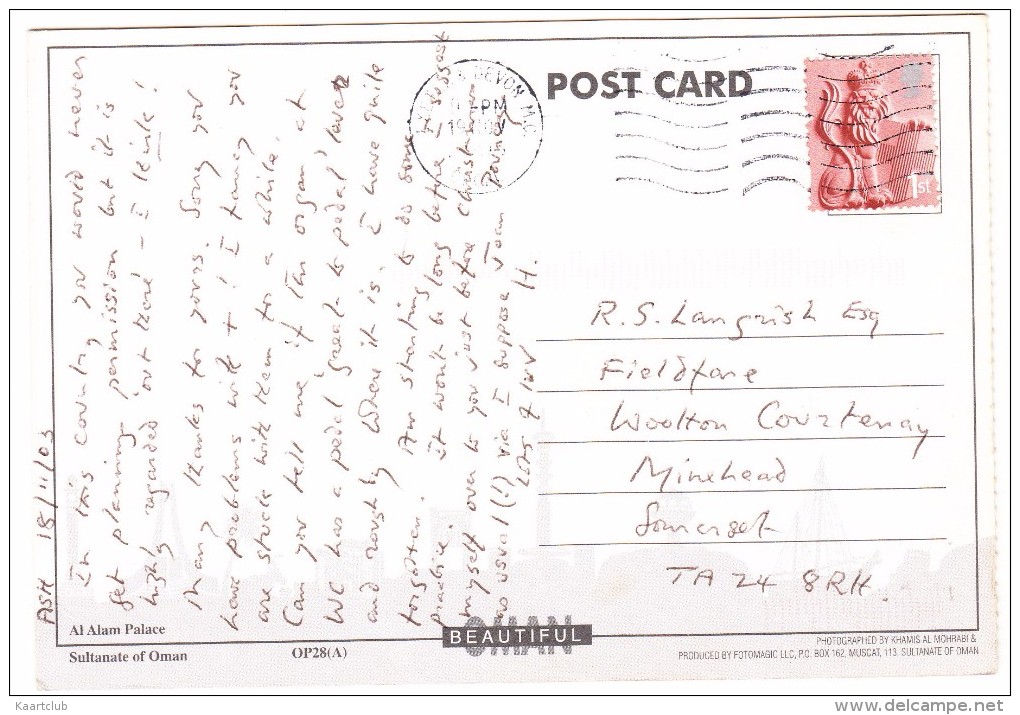 POST CARD
DEVON
PM
19 NOV
1st
ASH 18/11/03
In this country you would never
get planning permission but it is
highly regarded 'out there' - I think!
Many thanks for yours. Sorry you
have problems with + ! I fancy you
are stuck with them for a while.
Can you tell me if the organ at
WC has a pedal 'great to pedal' lever
and roughly where it is. I have quite
forgotten. Am starting to do some
practice. It won't be long before I suggest
myself over to you just before Christmas
as usual (!) via I suppose Joan
Lots of luv H.
R. S. Langrish Esq
Fieldfare
Woolton Courtenay
Minehead
Somerset
TA24 8RH.
Al Alam Palace
Sultanate of Oman
OP28(A)
BEAUTIFUL
OMAN
PHOTOGRAPHED BY KHAMIS AL MOHRABI &
PRODUCED BY FOTOMAGIC LLC, P.C. BOX 162, MUSCAT, 113. SULTANATE OF OMAN
Kaartclub
delcampe.net